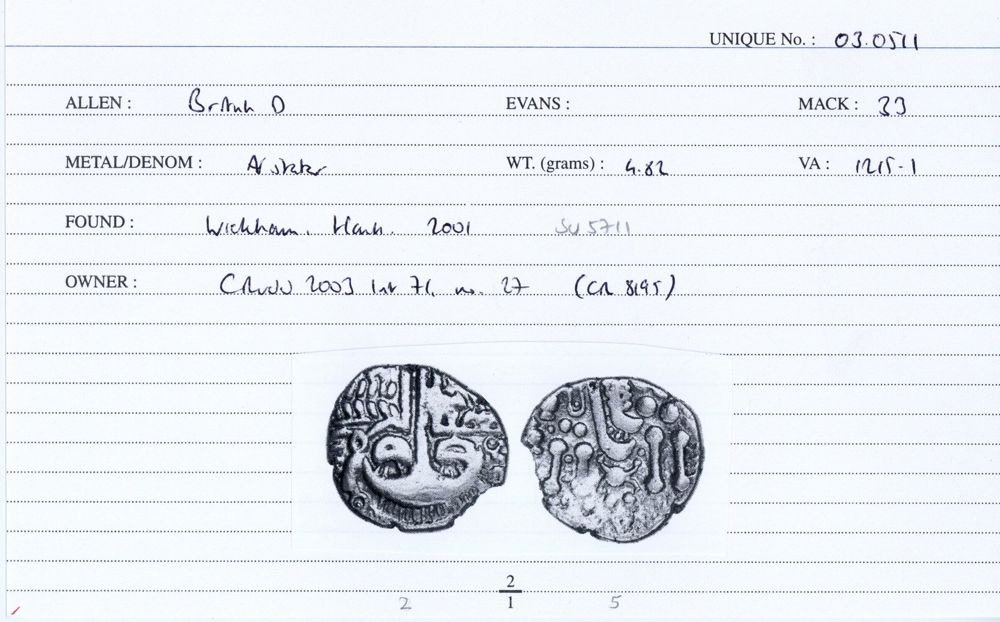 UNIQUE No. : 03.0511
ALLEN : British D EVANS : MACK : 33
METAL/DENOM : AV stater WT. (grams) : 4.82 VA : 1215-1
FOUND : Wickham, Hants. 2001 SU 5711
OWNER : CR 2003 list 71, no. 27 (CR 8195)
2
2 1 5